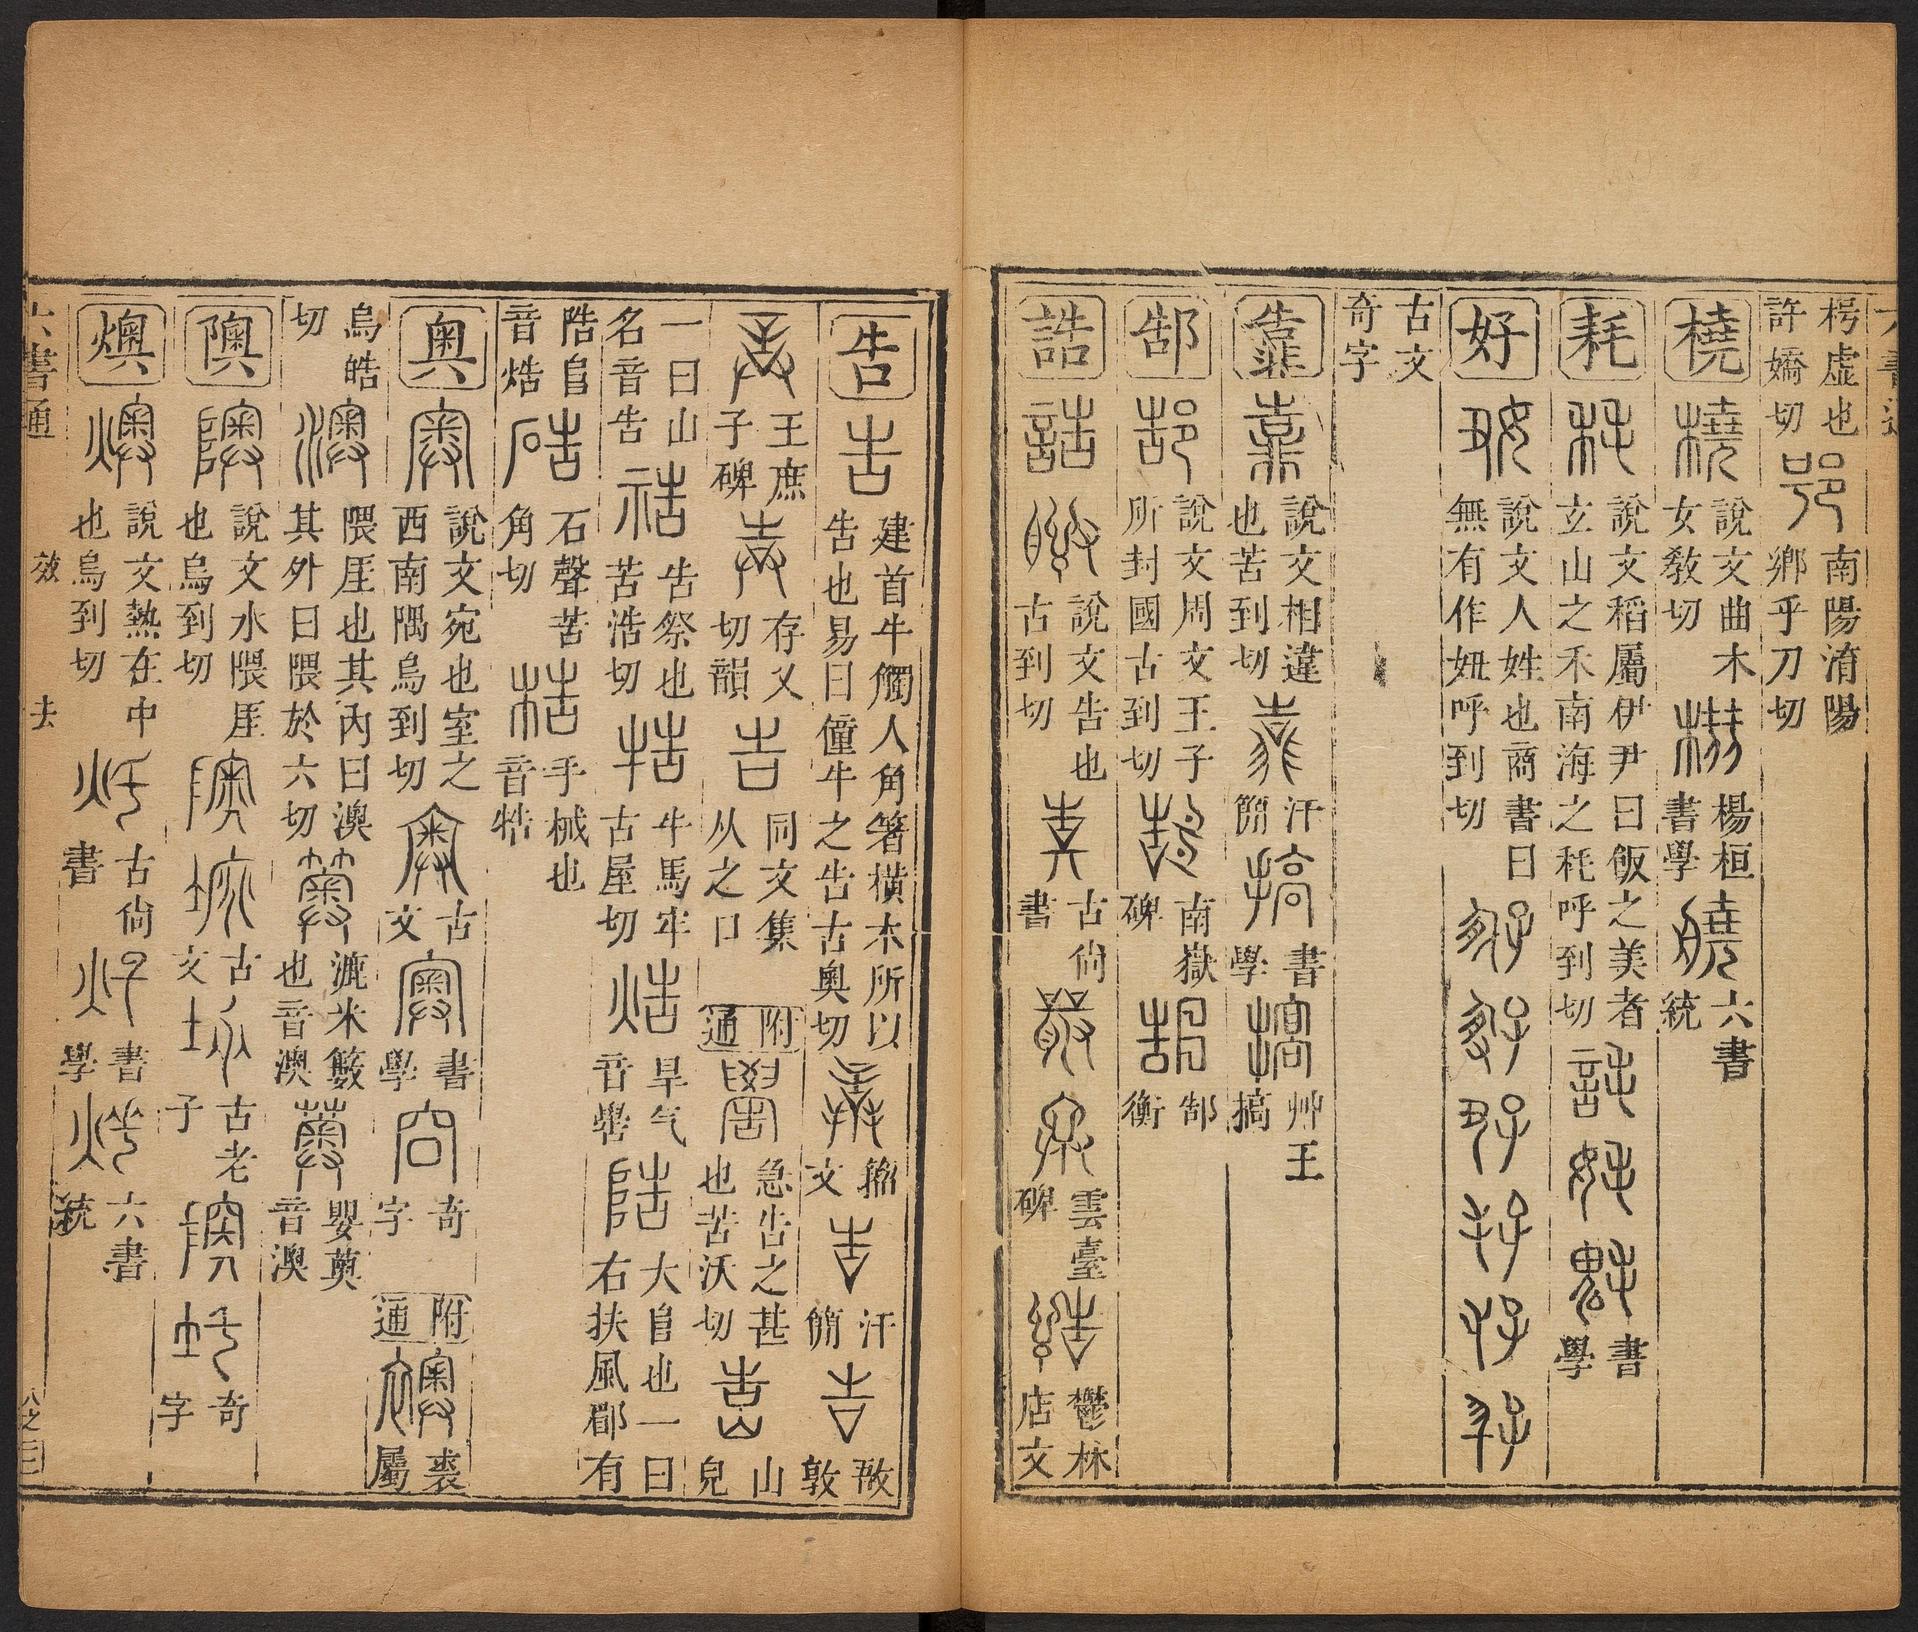 枵虛也
許嬌切
南陽淯陽
鄉乎刀切
橈
說文曲木
女教切
楊桓
書學
六書
統
耗
說文稻屬伊尹曰飯之美者
玄山之禾南海之秏呼到切
書
學
好
說文人姓也商書曰
無有作㚼呼到切
古文
奇字
靠
說文相違
也苦到切
汗
簡
書
學
艸王
搞
郜
說文周文王子
所封國古到切
南嶽
碑
郜
衡
誥
說文告也
古到切
古尙
書
雲臺
碑
鬱林
店文
告
建首牛觸人角箸橫木所以
告也易曰僮牛之告古奧切
籀
文
汗
簡
敦
王庶
子碑
存乂
切韻
同文集
从之口
附
通
急告之甚
也苦沃切
山
皃
一曰山
名音告
告祭也
苦浩切
牛馬牢
古屋切
旱气
音嚳
大𨸏也一曰
右扶風郿有
陼𨸏
音焅
石聲苦
角切
手械也
音牿
奧
說文宛也室之
西南隅烏到切
古
文
書
學
奇
字
附
通
裘
屬
烏皓
切
隈厓也其內曰澳
其外曰隈於六切
漉米籔
也音澳
嬰薁
音澳
隩
說文水隈厓
也烏到切
古
文
古老
子
奇
字
燠
說文熱在中
也烏到切
古尙
書
書
學
六書
統
六書通
效
去
八之